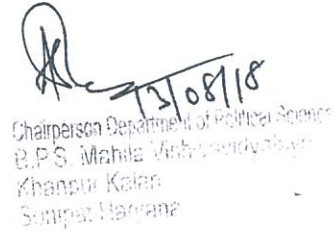 13/08/18
Chairperson Department of Political Science
B.P.S. Mahila Vishwavidyalaya
Khanpur Kalan
Sonipat Haryana